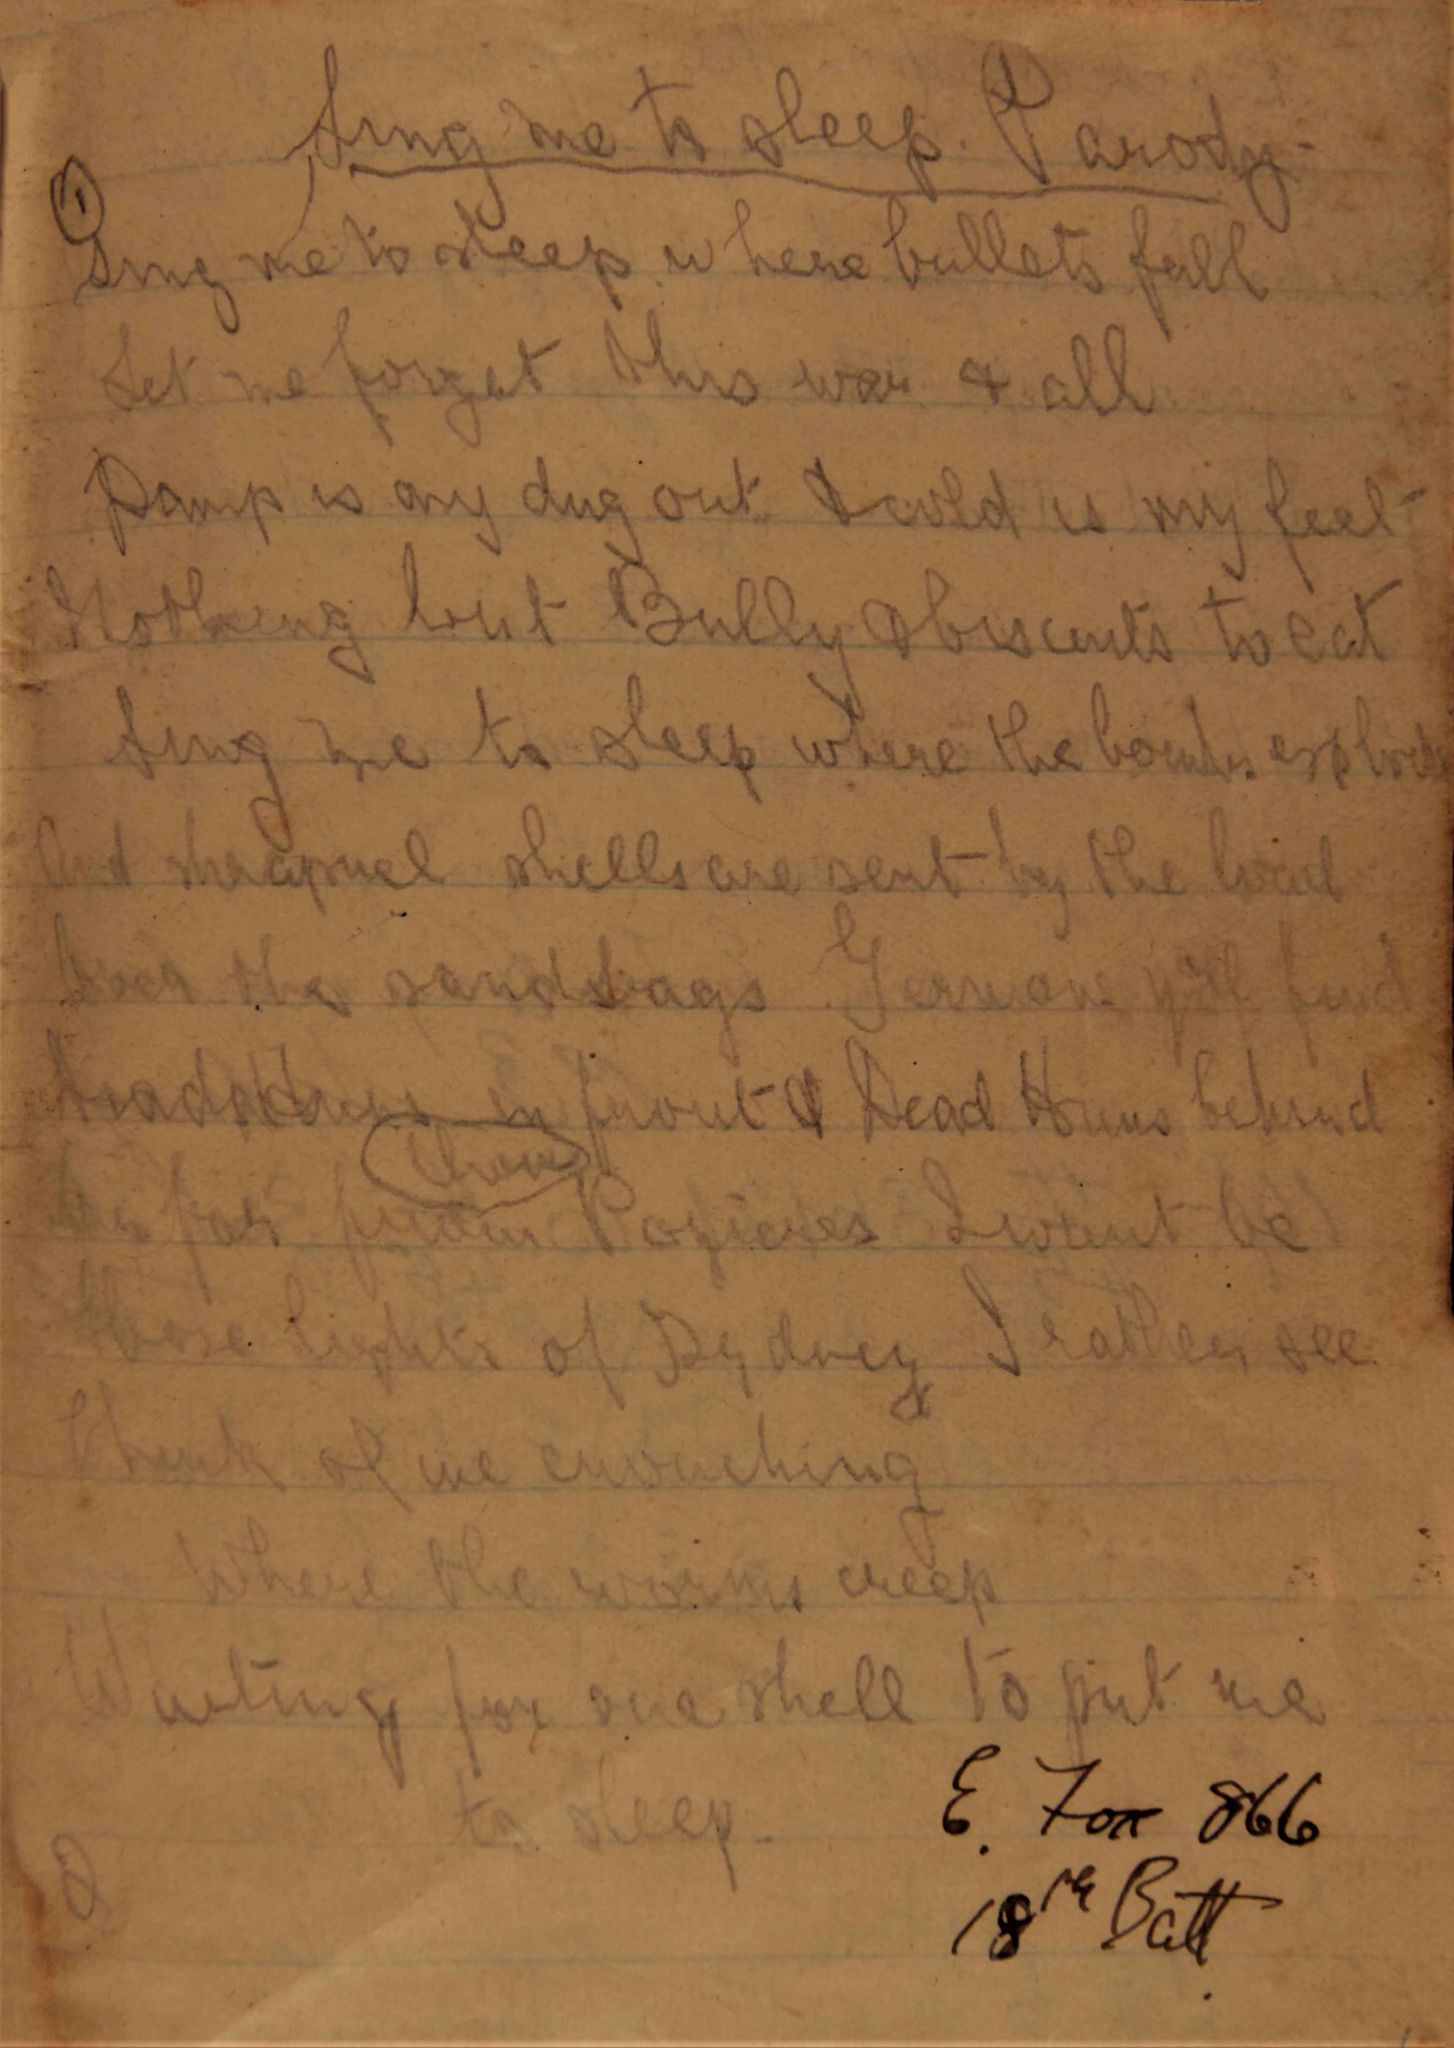 Sing me to sleep. Parody-
1
Sing me to sleep where bullets fall
Let me forget this war & all
Damp is my dug out & cold is my feet
Nothing but Bully & biscuits to eat
Sing me to sleep where the bombs explode
And shrapnel shells are sent by the load
Over the sandbags you'll find
in front & Dead Huns behind
far from Pozieres I want be
Those lights of Sydney I rather see
Think of me crouching
Where the worms creep
Waiting for one shell to put me
to sleep.
E. Fox 866
18th Batt
2